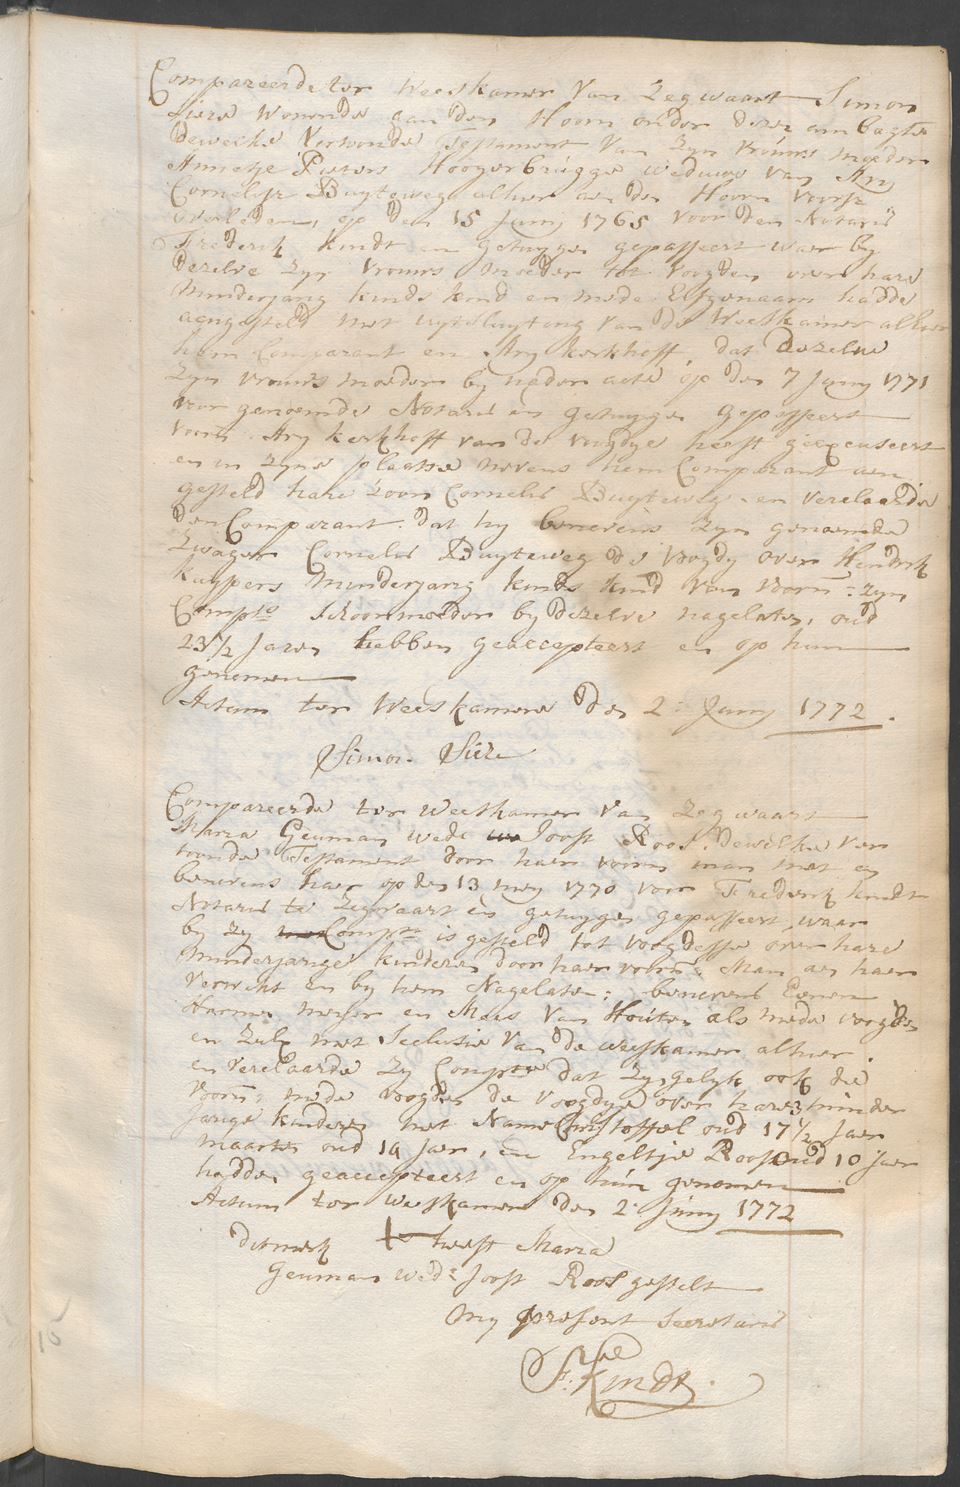 Compareerde ter Weeskamer van Zegwaart Simon
Siere Wonende aan den Hoorn onder deze ambagte
dewelke Vertoonde Testament van zyn vrouws moeder
Annetje Pieters Hoogerbrugge weduwe van Ary
Cornelisz Buyteweg alhier aen den Hoorn voorsz
overleden, op den 15 Juny 1765 voor den Notaris
Frederik Kindt en getuygen gepasseert waer by
dezelve zyn vrouws moeder tot voogden over hare
minderjarig kinds kind en mede Erfgenaam hadde
aengesteld met uytsluyting van de Weeskamer alhier
hem Comparant en Ary Kerkhoff, dat dezelve
zyn vrouws moeder by nader acte op den 7 Juny 1771
voor genoemde Notaris en getuygen gepasseert
voorn: Ary Kerkhoff van de voogdye heeft geexcuseert
en in zyne plaatse nevens hem Comparant aen
gesteld hare zoon Cornelis Buyteweg en verclaarde
den Comparant dat hy benevens zyn genoemde
Zwager Cornelis Buyteweg de voogdy over Hendrik
Kuypers minderjarig kinds kind van voorn: zyn
Compts schoonmoeder by dezelve nagelaten, oud
23½ Jaren hebben geaccepteert en op hun
genomen
Actum ter Weeskamere den 2: Juny 1772.
Simon Siere
Compareerde ter weeskamer van Zegwaart
Maria Geuman wede Joost Roos. Dewelke ver
toonde Testament door haer voorn man met en
benevens haer op den 13 mey 1770 voor Frederik Kindt
Notaris te Zegwaart en getuygen gepasseert waer
by zy Compte is gesteld tot voogdesse over hare
minderjarige kinderen door haer voorn: Man aen haer
verwekt en by hem Nagelaten: benevens Eenen
Harmen meyer en Mees van Houten als mede voogden
en zulx met seclusie van de weeskamer alhier.
en verclaarde zy Compte dat zy gelyk ook de
voorn: mede voogden de voogdye over hare 3 minder
jarige kinderen met Name Christoffel oud 17½ Jaer
maarten oud 14 Jaer, en Engeltje Roos oud 10 Jaer
hadden geaccepteert en op hun genomen
Actum ter weeskamer den 2: Juny 1772
dit merk heeft Maria
Geuman wede Joost Roos gestelt
My present secretaris
F: Kindt.